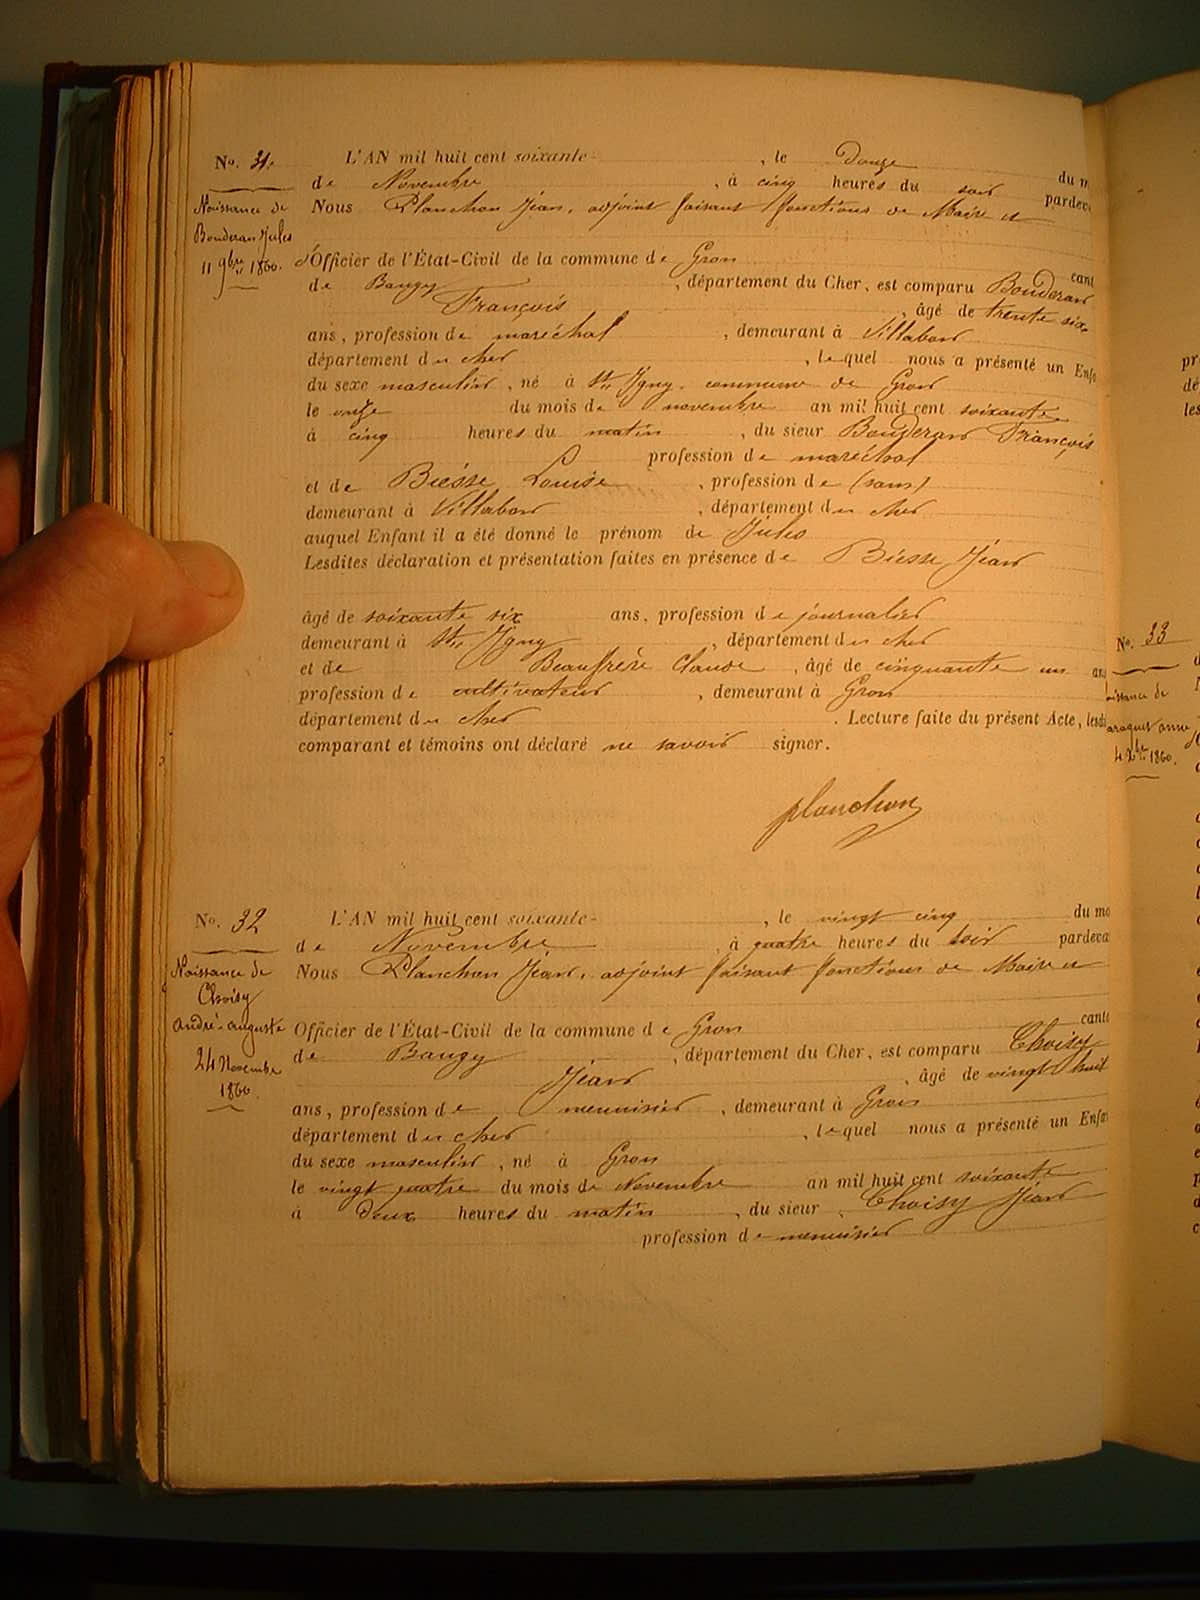 No. 31.
Naissance de
Bouderan Jules
11 9bre 1860.
L'AN mil huit cent soixante , le Douze du m
de Novembre , à cinq heures du soir pardeva
Nous Planchon Jean, adjoint faisant fonctions de Maire et
d'Officier de l'État-Civil de la commune de Gron cant
de Baugy , département du Cher, est comparu Bouderan
François , âgé de trente six
ans, profession de maréchal , demeurant à Villabon
département du cher , lequel nous a présenté un Enfa
du sexe masculin , né à Ste Igny, commune de Gron
le onze du mois de novembre an mil huit cent soixante
à cinq heures du matin , du sieur Bouderan François
profession de maréchal
et de Biésse Louise , profession de (sans)
demeurant à Villabon , département du cher
auquel Enfant il a été donné le prénom de Jules
Lesdites déclaration et présentation faites en présence de Biésse Jean
âgé de soixante six ans, profession de journalier
demeurant à Ste Igny , département du cher
et de Beaufrère Claude , âgé de cinquante un ans
profession de cultivateur , demeurant à Gron
département du cher . Lecture faite du présent Acte, lesdi
comparant et témoins ont déclaré ne savoir signer.
planchon
No. 32
Naissance de
Choisy
andré-auguste
24 Novembre
1860.
L'AN mil huit cent soixante , le vingt cinq du mo
de Novembre , à quatre heures du soir pardeva
Nous Planchon Jean, adjoint faisant fonctions de Maire et
Officier de l'État-Civil de la commune de Gron canto
de Baugy , département du Cher, est comparu Choisy
Jean , âgé de vingt huit
ans, profession de menuisier , demeurant à Gron
département du cher , lequel nous a présenté un Enfa
du sexe masculin , né à Gron
le vingt quatre du mois de Novembre an mil huit cent soixante
à deux heures du matin , du sieur Choisy Jean
profession de menuisier
No. 33
aissance de
araquet anne
4 Xbre 1860.
pr
dé
les